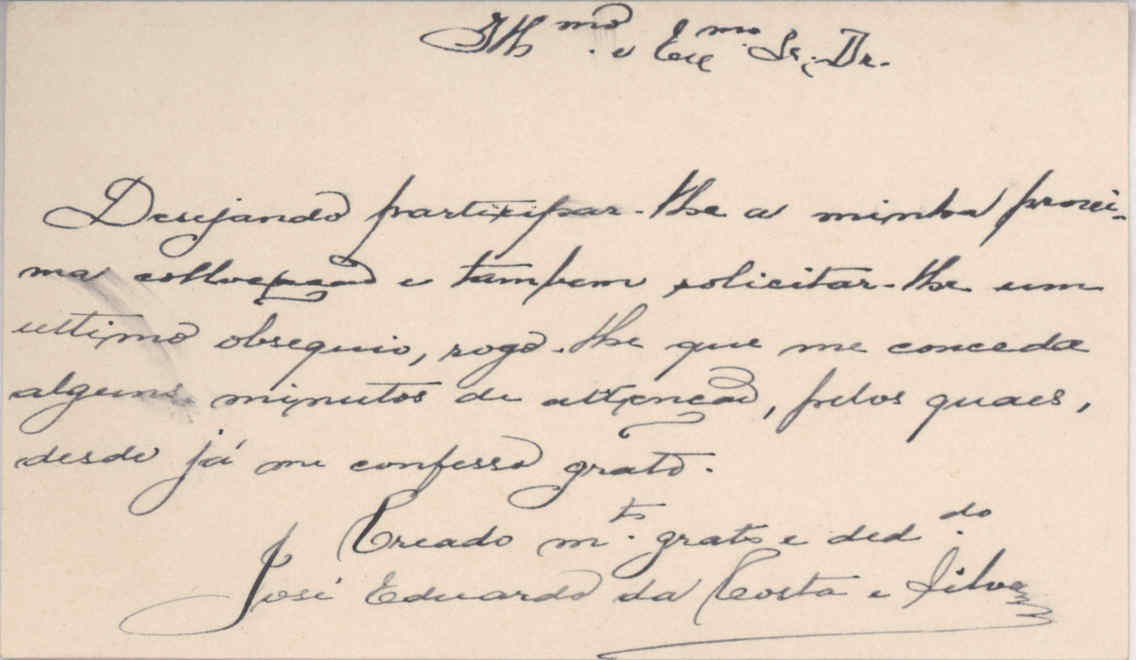 Illmo. e Exmo. Sr. Dr.
Desejando participar-lhe a minha proxi-
ma collocação e tambem solicitar-lhe um
ultimo obsequio, rogo-lhe que me conceda
alguns minutos de attenção, pelos quaes,
desde já me confesso grato.
Creado mto. grato e dedo.
José Eduardo da Costa e Silva